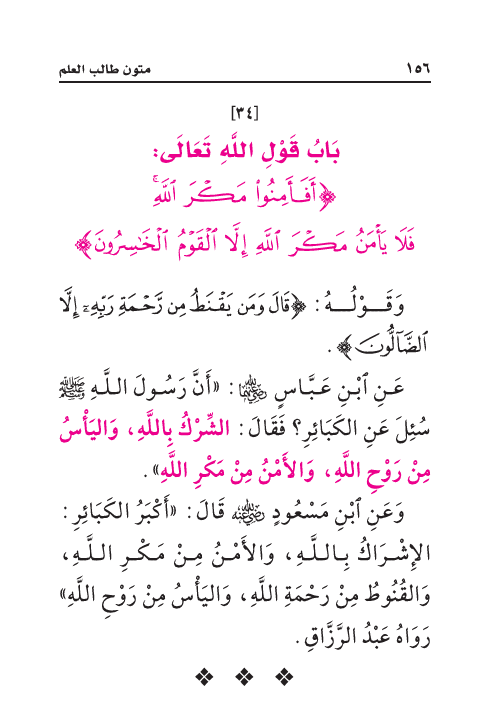 متون طالب العلم ١٥٦
[٣٤]
بَابُ قَوْلِ اللَّهِ تَعَالَى:
﴿أَفَأَمِنُوا۟ مَكْرَ ٱللَّهِ ۚ
فَلَا يَأْمَنُ مَكْرَ ٱللَّهِ إِلَّا ٱلْقَوْمُ ٱلْخَٰسِرُونَ﴾
وَقَـوْلُـهُ: ﴿قَالَ وَمَن يَقْنَطُ مِن رَّحْمَةِ رَبِّهِۦٓ إِلَّا
ٱلضَّآلُّونَ﴾.
عَـنِ ٱبْـنِ عَبَّـاسٍ رضي الله عنهما: «أَنَّ رَسُولَ اللَّـهِ ﷺ
سُئِلَ عَنِ الكَبَائِرِ؟ فَقَالَ: الشِّرْكُ بِاللَّهِ، وَاليَأْسُ
مِنْ رَوْحِ اللَّهِ، وَالأَمْنُ مِنْ مَكْرِ اللَّهِ».
وَعَنِ ٱبْنِ مَسْعُودٍ رضي الله عنه قَالَ: «أَكْبَرُ الكَبَائِرِ:
الإِشْرَاكُ بِاللَّـهِ، وَالأَمْـنُ مِـنْ مَكْـرِ اللَّـهِ،
وَالقُنُوطُ مِنْ رَحْمَةِ اللَّهِ، وَاليَأْسُ مِنْ رَوْحِ اللَّهِ»
رَوَاهُ عَبْدُ الرَّزَّاقِ.